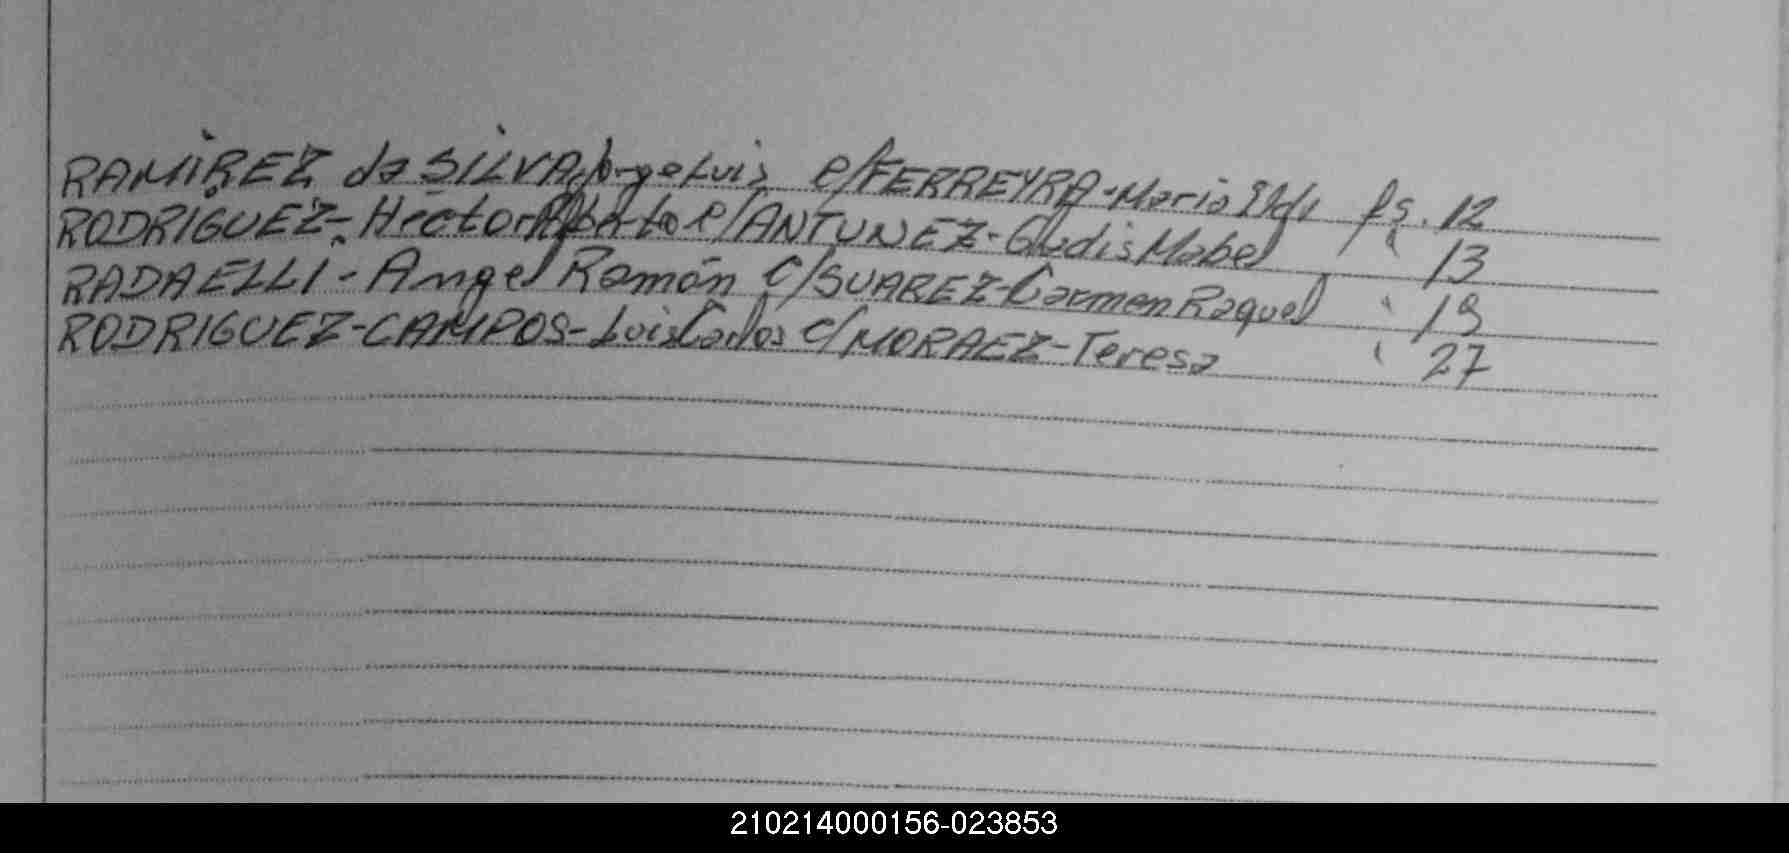 RAMÍREZ da SILVA, Jorge Luis c/FERREYRA-María fs. 12
RODRIGUEZ-Hector Alberto c/ANTUNEZ-Gladis Mabel " 13
RADAELLI-Angel Ramón c/SUAREZ-Carmen Raquel " 19
RODRIGUEZ-CAMPOS-Luis Carlos c/MORAEZ-Teresa " 27
210214000156-023853